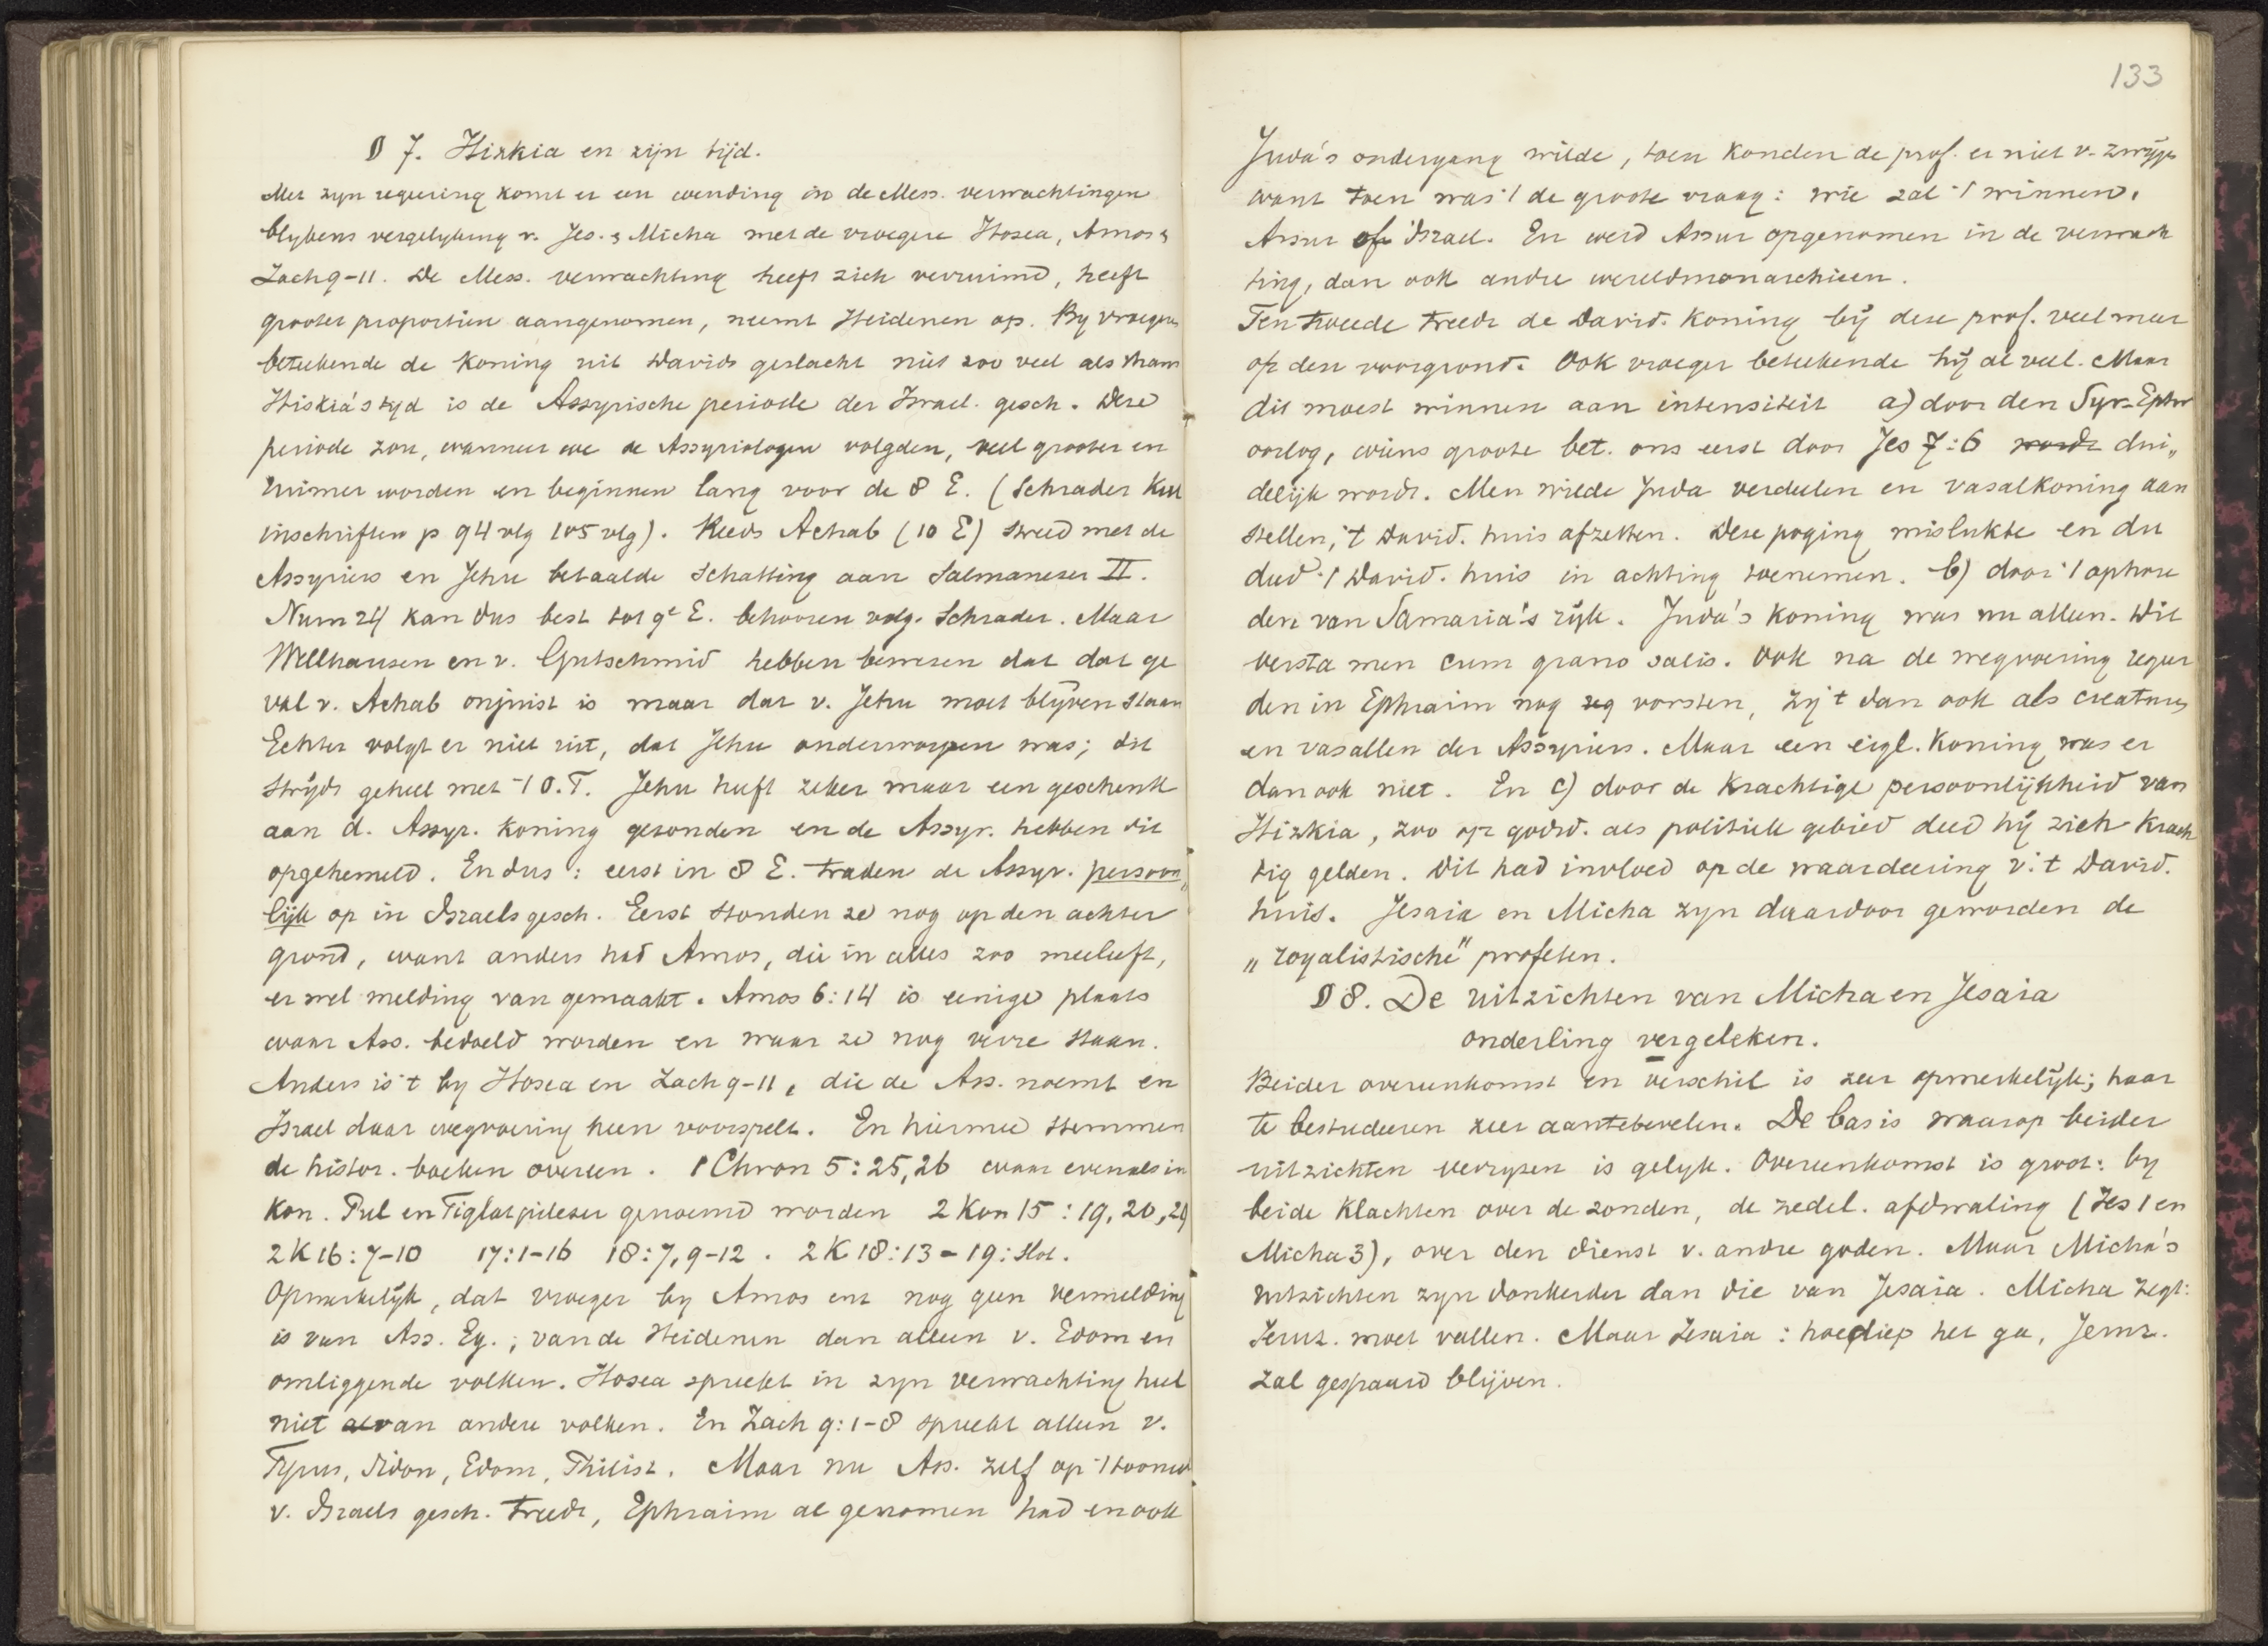 § 7. Hizkia en zijn tijd.
Met zyn regeering komt er een wending in de Mess. verwachtingen
blykens vergelyking v. Jes. & Micha met de vroegere Hosea, Amos &
Zach 9-11. De Mess. verwachting heeft zich verruimd, heeft
grooter proportien aangenomen, neemt Heidenen op. By vroegere
beteekende de Koning uit Davids geslacht niet zoo veel als thans
Hiskia's tyd is de Assyrische periode der Israel. gesch. Deze
periode zou, wanneer we de Assyriologen volgden, veel grooter en
ruimer worden en beginnen lang voor de 8 E. (Schrader Keil
inschriften p 94 vlg 105 vlg). Reeds Achab (10 E) streed met de
Assyriers en Jehu betaalde schatting aan Salmaneser II.
Num 24 kan dus best tot 9e E. behooren volg. Schrader. Maar
Wellhausen en v. Gutschmid hebben bewezen dat dat ge
val v. Achab onjuist is maar dat v. Jehu moet blyven staan
Echter volgt er niet uit, dat Jehu onderworpen was; dit
strijdt geheel met 't O.T. Jehu heeft zeker maar een geschenk
aan d. Assyr. Koning gezonden en de Assyr. hebben dit
opgehemeld. En dus: eerst in 8 E. traden de Assyr. persoon„
lijk op in Israels gesch. Eerst stonden ze nog op den achter
grond, want anders had Amos, die in alles zoo meeleeft,
er wel melding van gemaakt. Amos 6:14 is eenige plaats
waar Ass. bedoeld worden en waar ze nog verre staan.
Anders is 't by Hosea en Zach 9-11, die de Ass. noemt en
Israel daar wegvoering heen voorspelt. En hiermee stemmen
de histor. boeken overeen. 1 Chron 5:25,26 waar evenals in
Kon. Pul en Tiglatpileser genoemd worden 2 Kon 15:19,20,29
2 K 16:7-10 17:1-16 18:7,9-12. 2 K 18:13 - 19: slot.
Opmerkelijk, dat vroeger by Amos enz nog geen vermelding
is van Ass. Eg.; van de Heidenen dan alleen v. Edom en
omliggende volken. Hosea spreekt in zyn verwachting heel
niet van andere volken. En Zach 9:1-8 spreekt alleen v.
Tyrus, Sidon, Edom, Philist. Maar nu Ass. zelf op 't tooneel
v. Israels gesch. treedt, Ephraim al genomen had en ook
133
Juda's ondergang wilde, toen konden de prof. er niet v. zwijgen
want toen was 't de groote vraag: wie zal 't winnen,
Assur of Israel. En werd Assur opgenomen in de verwach
ting, dan ook andre wereldmonarchieen.
Ten tweede treedt de David. Koning bij deze prof. veel meer
op den voorgrond. Ook vroeger beteekende hij al veel. Maar
dit moest winnen aan intensiteit a) door den Syr-Ephr
oorlog, wiens groote bet. ons eerst door Jes 7:6 wordt dui„
delijk wordt. Men wilde Juda verdeelen en vasalkoning aan
stellen, 't David. huis afzetten. Deze poging mislukte en dit
deed 't David. huis in achting toenemen. b) door 't ophou
den van Samaria's rijk. Juda's Koning was nu alleen. Dit
versta men cum grano salis. Ook na de wegvoering regeer
den in Ephraim nog vorsten, zij 't dan ook als creaturen
en vasallen der Assyriers. Maar een eigl. Koning was er
dan ook niet. En c) door de krachtige persoonlijkheid van
Hizkia, zoo op godsd. als politiek gebied deed hij zich krach
tig gelden. Dit had invloed op de waardeering v. 't David.
huis. Jesaia en Micha zyn daardoor geworden de
„royalistische" profeten.
§ 8. De uitzichten van Micha en Jesaia
onderling vergeleken.
Beider overeenkomst en verschil is zeer opmerkelijk; haar
te bestudeeren zeer aantebevelen. De basis waarop beider
uitzichten verrysen is gelyk. Overeenkomst is groot: by
beide klachten over de zonden, de zedel. afdwaling (Jes 1 en
Micha 3), over den dienst v. andre goden. Maar Micha's
uitzichten zyn donkerder dan die van Jesaia. Micha zegt:
Jeruz. moet vallen. Maar Jesaia: hoe diep het ga, Jeruz.
zal gespaard blijven.